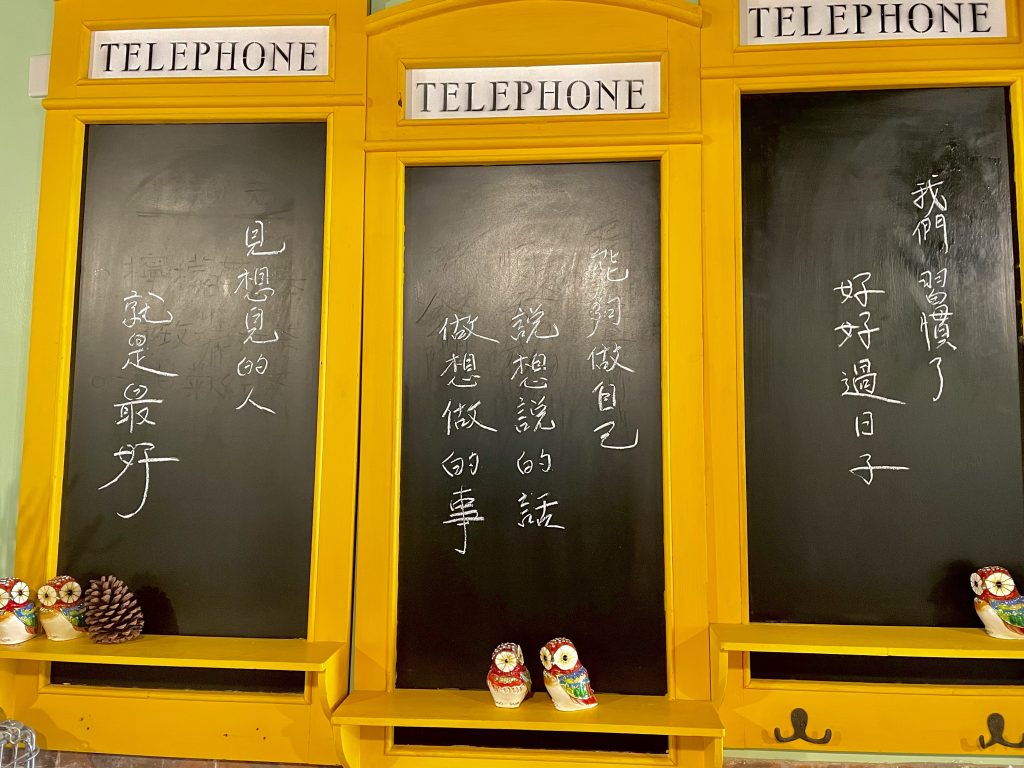 TELEPHONE
TELEPHONE
TELEPHONE
我們習慣了
好好過日子
能夠做自己
說想說的話
做想做的事
見想見的人
就是最好